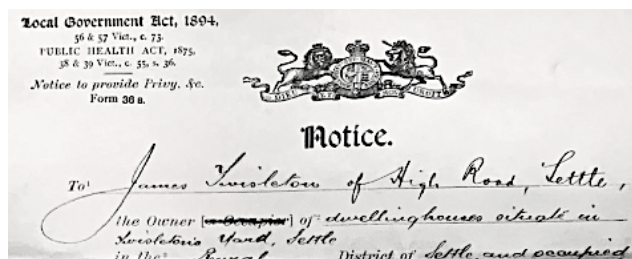 Local Government Act, 1894,
56 & 57 Vict., c. 73.
PUBLIC HEALTH ACT, 1875,
38 & 39 Vict., c. 55, s. 36.
Notice to provide Privy, &c.
Form 36 B.
DIEU ET MON DROIT
Notice.
To James Twisleton of High Road, Settle,
the Owner [or Occupier] of dwellinghouses situate in
Twisleton's Yard, Settle
in the Rural District of Settle and occupied